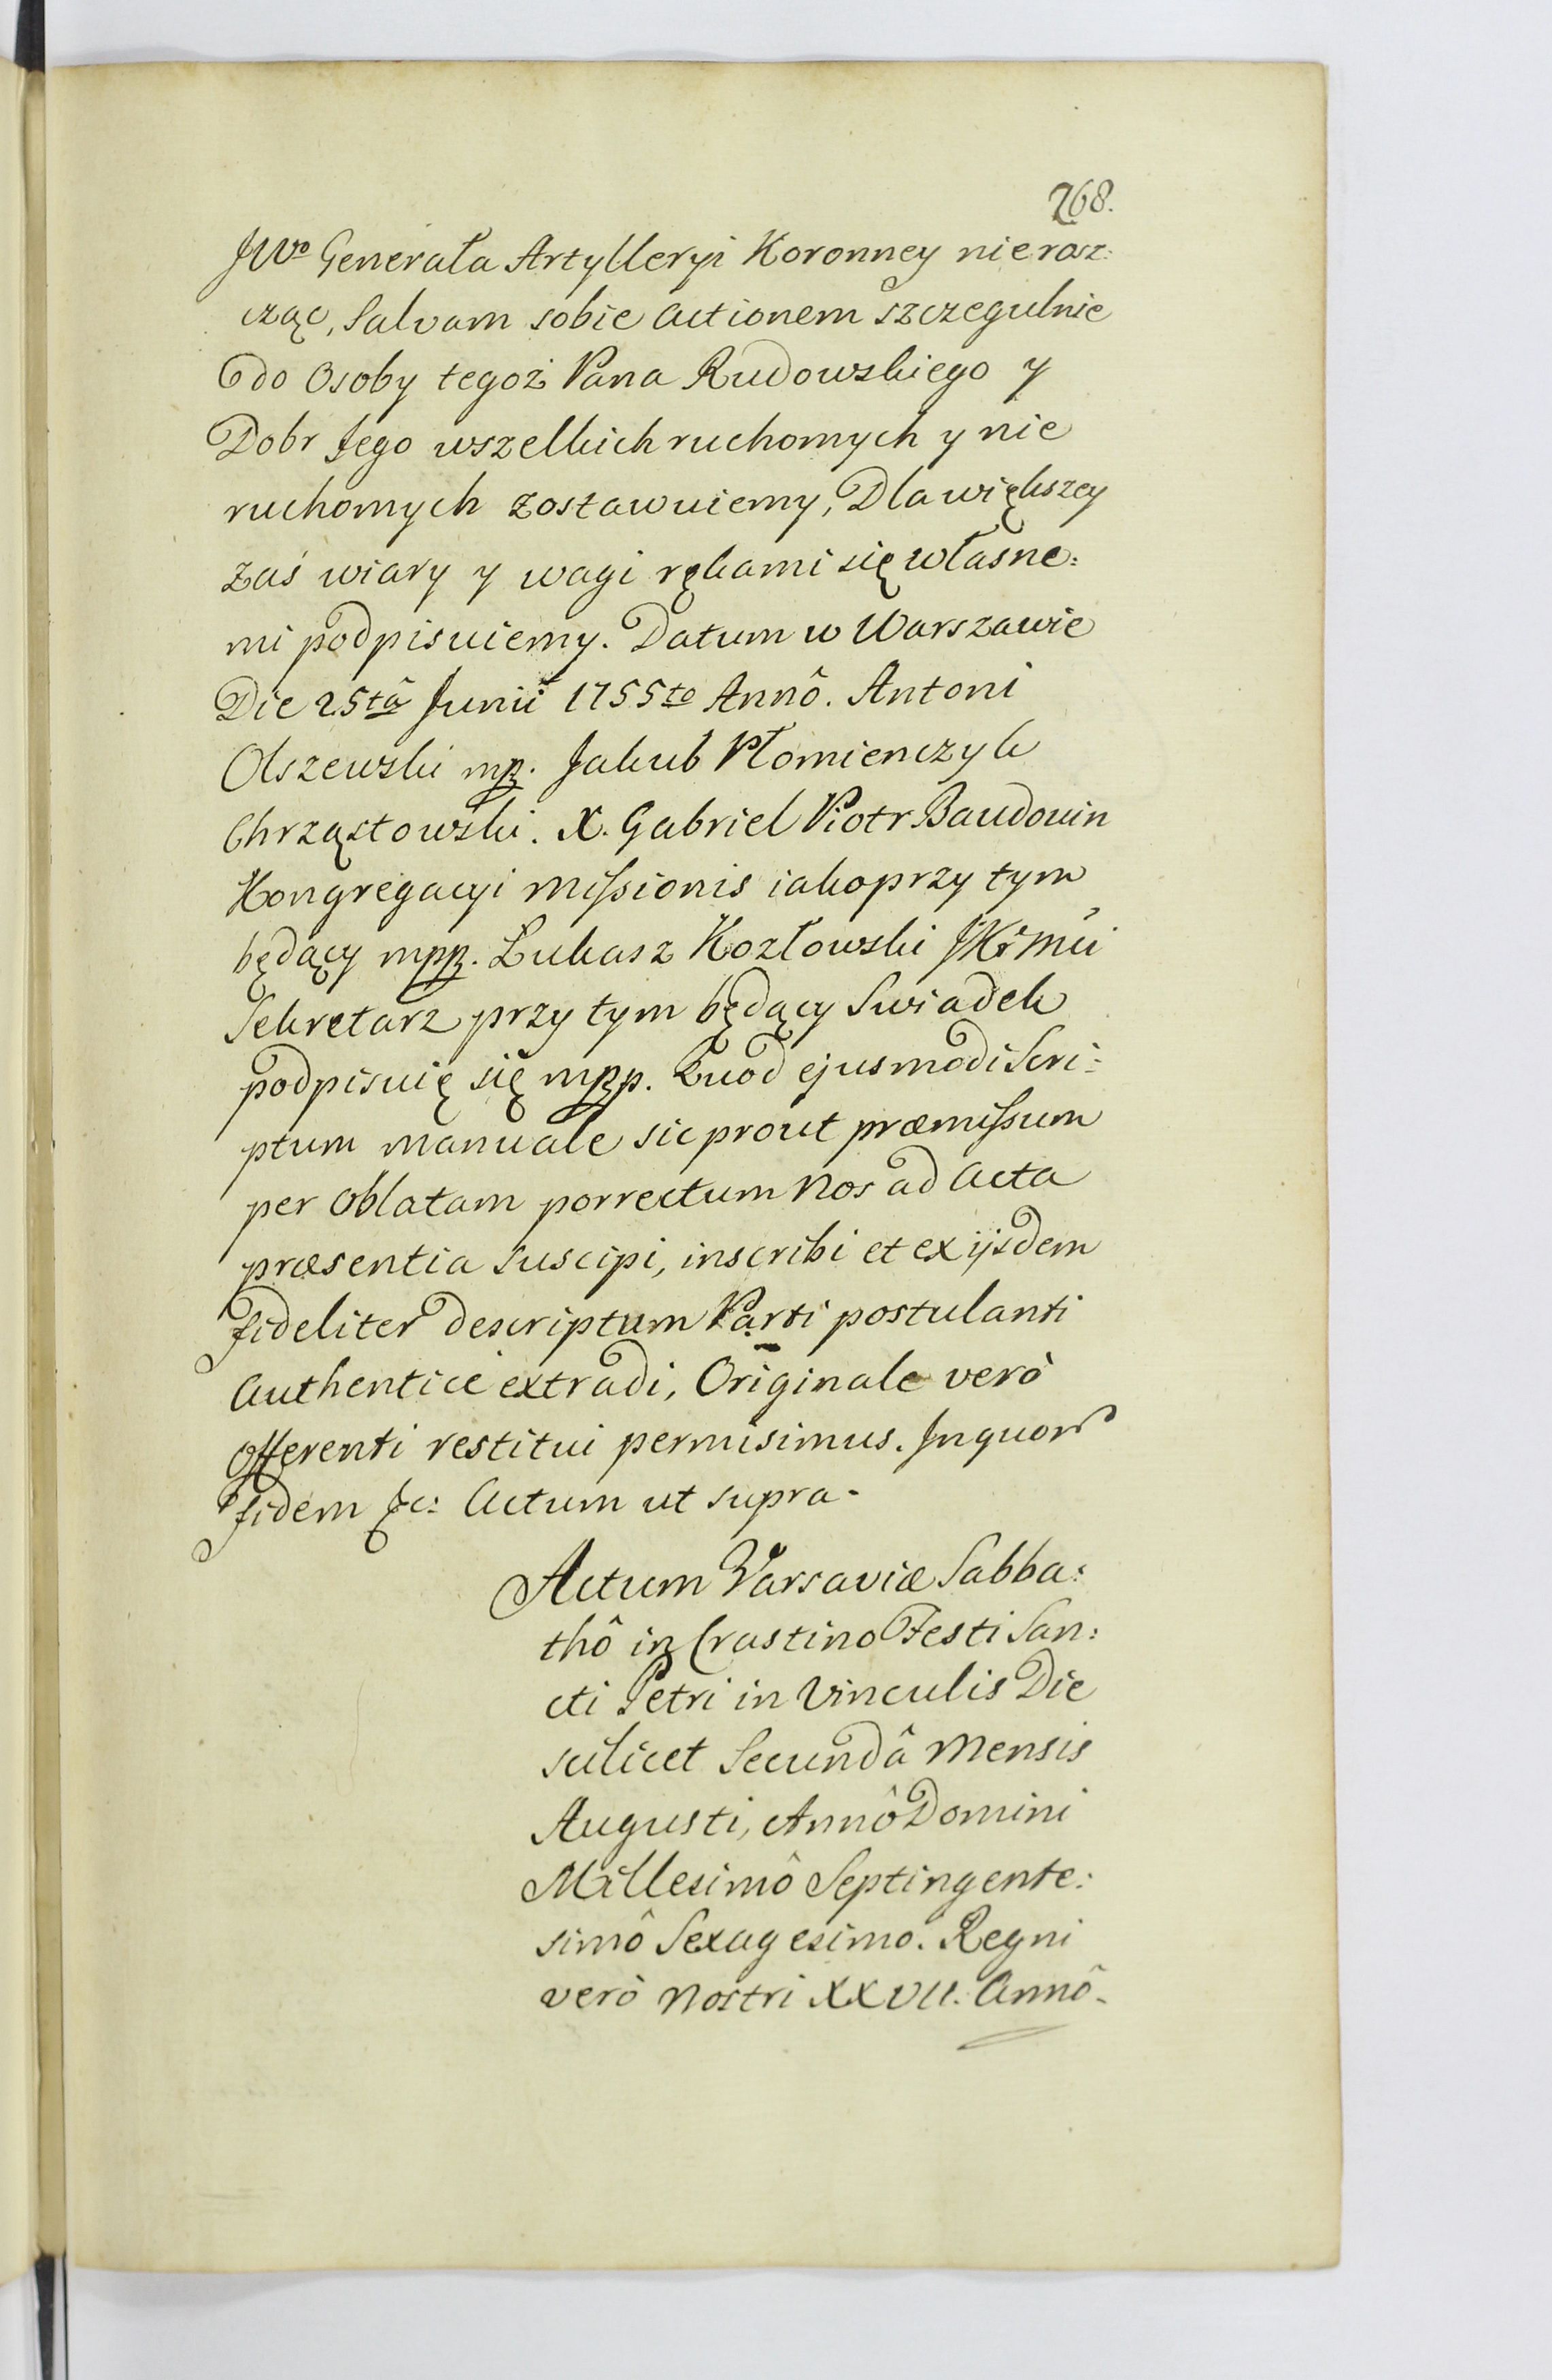 268.
JWo Generała Artylleryi Koronney nie rosz:
cząc, Salvam sobie actionem szczegulnie
do Osoby tegoż Pana Rudowskiego y
Dobr Jego wszelkich ruchomych y nie
ruchomych zostawuiemy, Dla większey
zaś wiary y wagi rękami się własne:
mi podpisuiemy. Datum w Warszawie
Die 25tâ Junii 1755to Annô. Antoni
Olszewski mp. Jakub Płomienczyk
Chrząstowski. X. Gabriel Piotr Baudouin
Kongregacyi Missionis iako przy tym
będący mpp. Łukasz Kozłowski JKrMci
Sekretarz przy tym będący Swiadek
podpisuię się mpp. Quod ejusmodi Scri:
ptum manuale sic prout præmissum
per Oblatam porrectum Nos ad Acta
præsentia suscipi, inscribi et ex ijsdem
fideliter descriptum Parti postulanti
Authenticè extradi, Originale verò
Offerenti restitui permisimus. In quor
fidem &c: Actum ut supra.
Actum Varsaviæ Sabba:
thô in Crastino Festi San:
cti Petri in Vinculis Die
scilicet Secundâ Mensis
Augusti, Annô Domini
Millesimô Septingente:
simô Sexagesimo. Regni
verò Nostri XXVII. Annô.